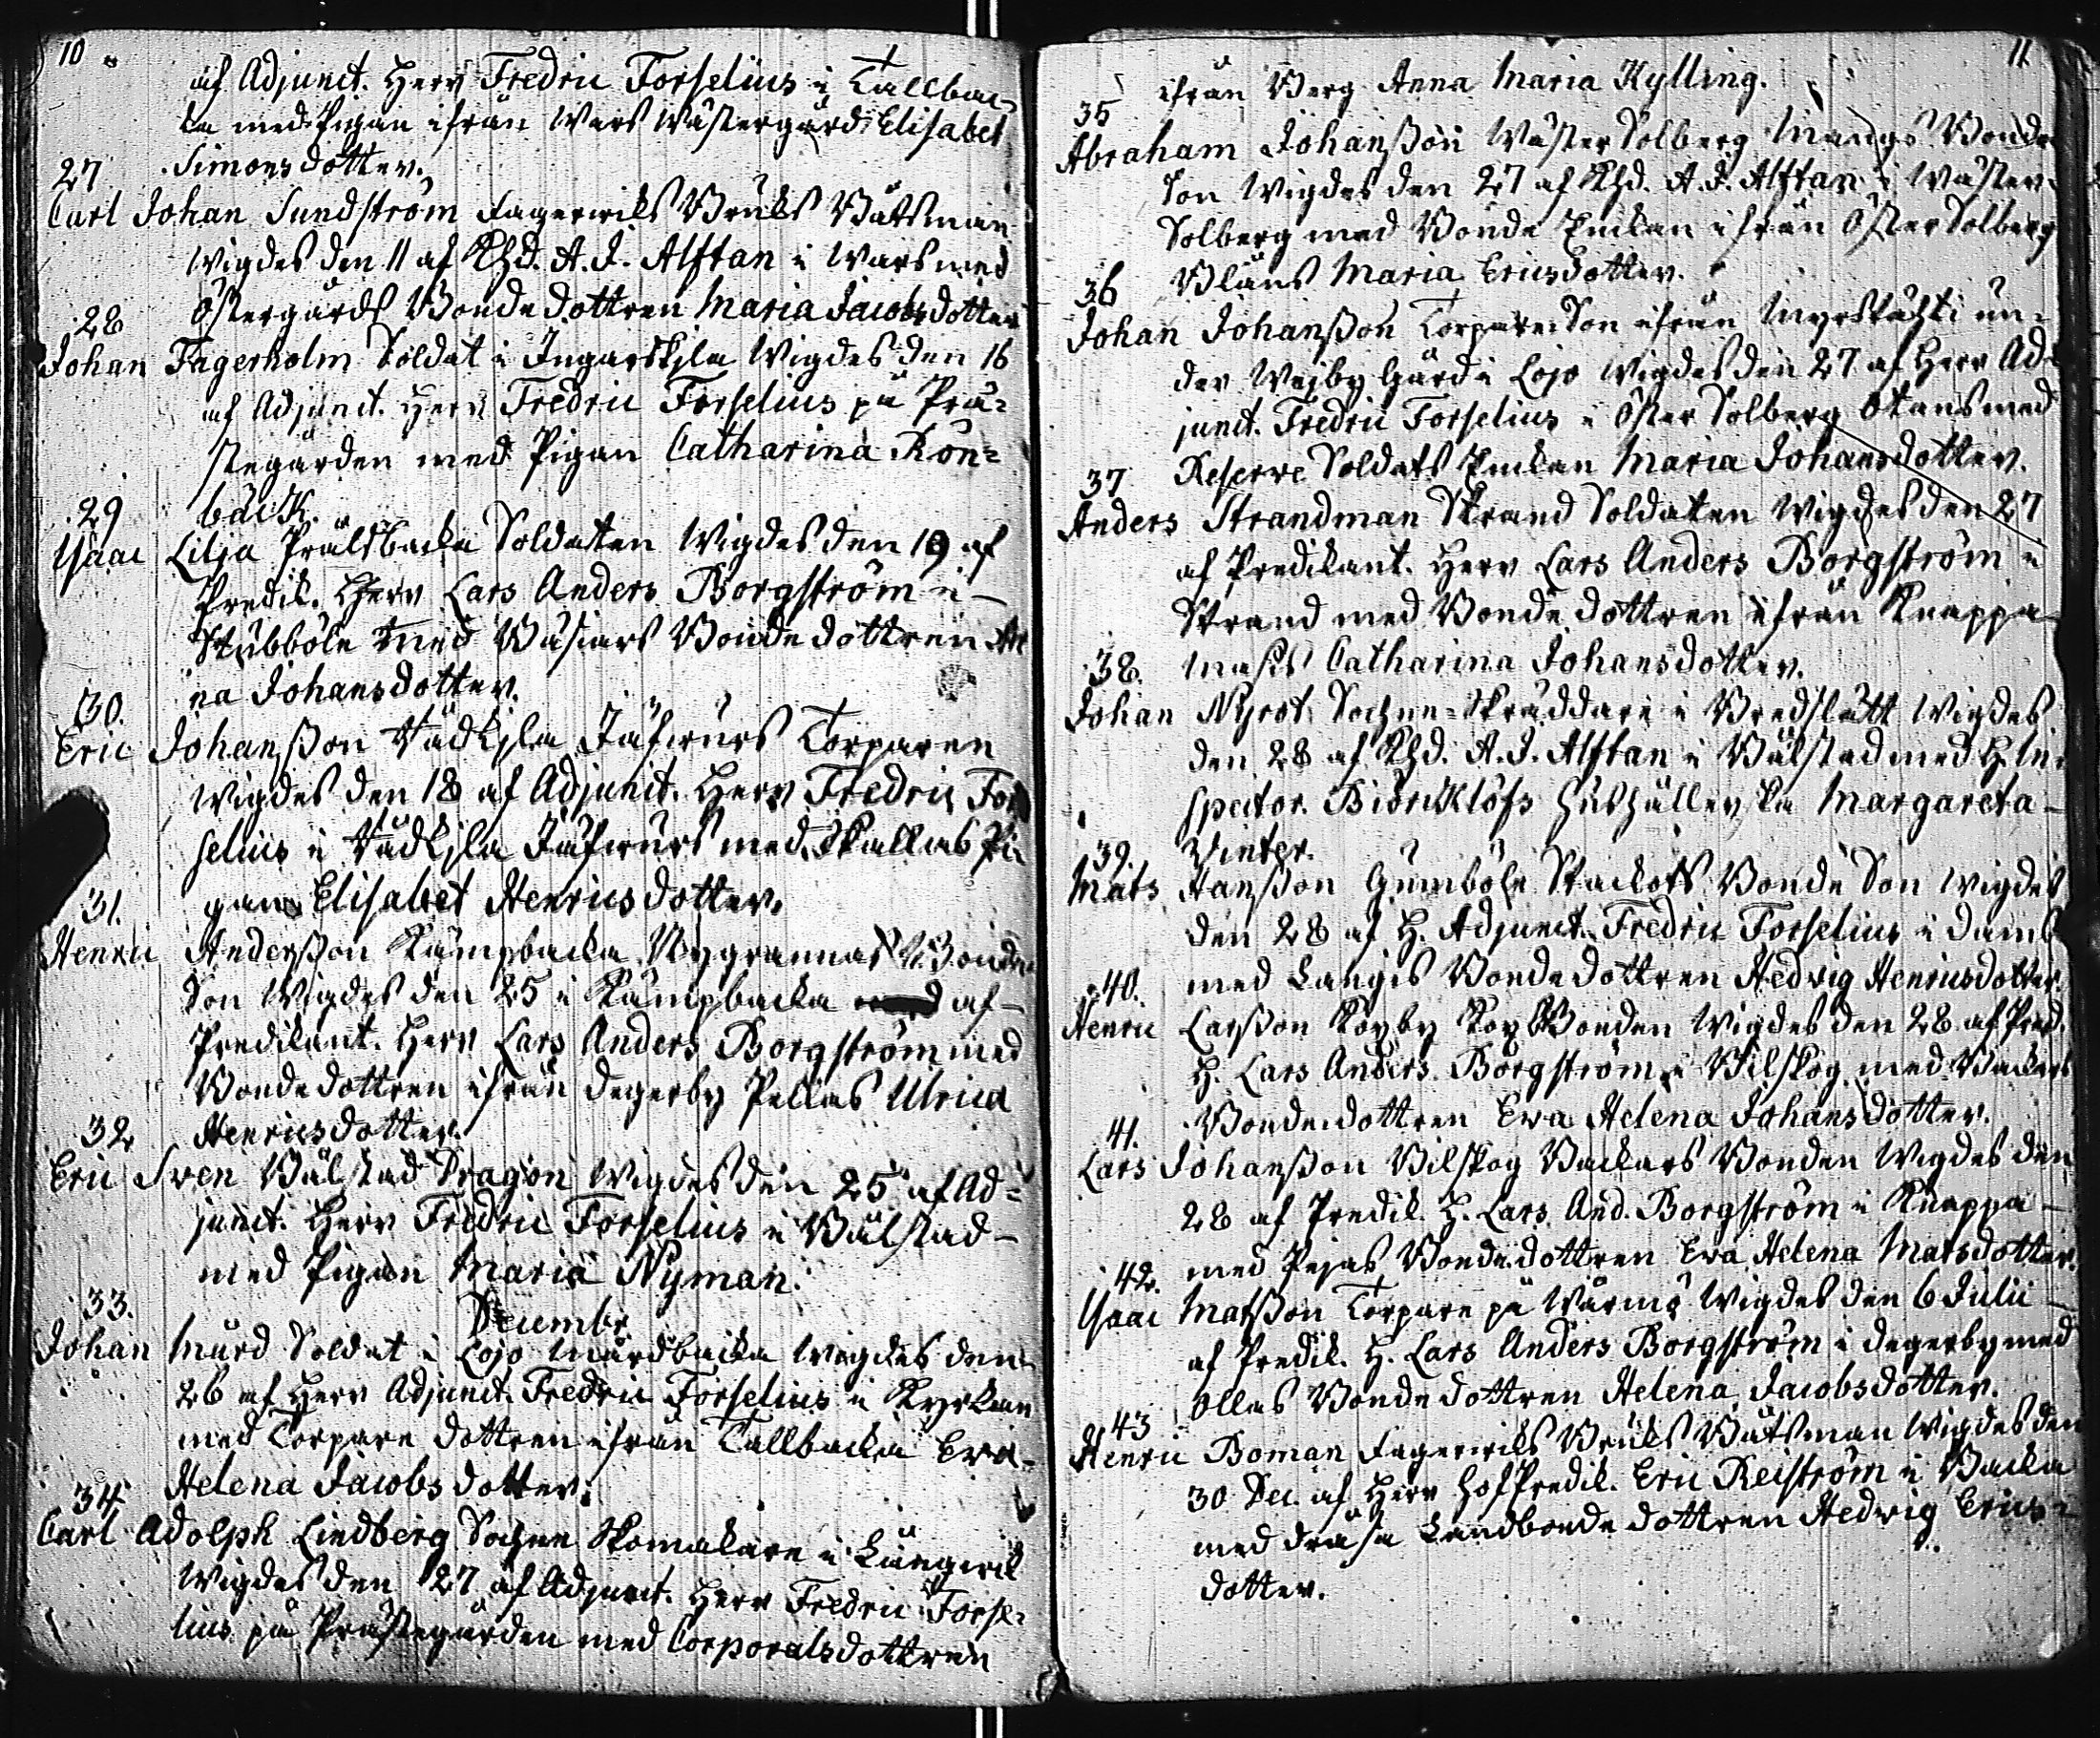 10
af Adjunct. Herr Fredric Forselius i Tallbac-
ka med Pigan ifrån Wars Wästergård Elisabet
Simonsdotter.
27
Carl Johan Sundström Fagerwiks Bruks Båtsman
Wigdes den 11 af Khd. A. J. Alftan i Wars med
Östergårds Bonde dottren Maria Jacobsdotter
28
Johan Fagerholm Soldat i Ingarskjla Wigdes den 16
af Adjunct. Herr Fredric Forselius på Prä-
stegården med Pigan Catharina Rön-
bäck.
29
Isaac Lilja Prälsbacka Soldaten Wigdes den 19 af
Predik. Herr Lars Anders Borgström i
Stubböle med Wäsars Bonde dottren An
na Johansdotter.
30.
Eric Johansson Tädkjla Jäfwurs Torparen
Wigdes den 18 af Adjunct. Herr Fredric For
selius i Tädkjla Jäfwurs med Skallas Pi
gan Elisabet Henricsdotter.
31.
Henric Andersson Kämpbacka Nygrannas Bonde
Son Wigdes den 25 i Kämpbacka af
Predikant. Herr Lars Anders Borgström med
Bonde dottren ifrån Degerby Pellas Ulrica
Henricsdotter.
32
Eric Sven Bålstad Dragon Wigdes den 25 af Ad-
junct. Herr Fredric Forselius i Bålstad
med Pigan Maria Nyman.
Decembr
33.
Johan Mård Soldat i Lojo Mårdbacka Wigdes den
26 af Herr Adjunct. Fredric Forselius i Kyrkan
med Torpare dottren ifrån Tallbacka Eva
Helena Jacobsdotter.
34
Carl Adolph Lindberg Sockne Skomakare i Långwik
Wigdes den 27 af Adjunct. Herr Fredric Forse-
lius på Prästegården med Corporalsdottren
11
ifrån Berg Anna Maria Kylling.
35
Abraham Johansson Wäster Solberg Mangs Bonde
Son Wigdes den 27 af Khd. A. J. Alftan i Wäster
Solberg med Bonde Enkan ifrån Öster Solberg
Bläus Maria Ericsdotter.
36
Johan Johansson Torpare Son ifrån un-
der Wejby Gård i Lojo Wigdes den 27 af Herr Ad-
junct. Fredric Forselius i Öster Solberg Otans med
Reserve Soldats Enkan Maria Johansdotter.
37
Anders Strandman Strand Soldaten Wigdes den 27
af Predikant. Herr Lars Anders Borgström i
Strand med Bonde dottren ifrån Knappa
Masis Catharina Johansdotter.
38.
Johan Nyrot Sochne-Skräddare i Bredslätt Wigdes
den 28 af Khd. A. J. Alftan i Bålstad med H. In-
spector. Biörcklöfs Hushållerska Margareta
Winter.
39.
Mats Hansson Gumböle Stackots Bonde Son Wigdes
den 28 af H. Adjunct. Fredric Forselius i Damb
med Langis Bonde dottren Hedvig Henricsdotter.
40.
Henric Larsson Kopby Kop Bonden Wigdes den 28 af Pred.
H. Lars Anders Borgström i Bilskog med Backars
Bonde dottren Ewa Helena Johansdotter.
41.
Lars Johansson Bilskog Backars Bonden Wigdes den
28 af Predik. H. Lars And. Borgström i Knappa
med Pejas Bonde dottren Ewa Helena Matsdotter.
42.
Isaac Matsson Torpare på Wärmö Wigdes den 6 Julii
af Predik. H. Lars Anders Borgström i Degerby med
Ollas Bonde dottren Helena Jacobsdotter.
43
Henric Boman Fagerwiks Bruks Båtsman Wigdes den
30 Dec. af Herr HofPredik. Eric Reiström i Backa
med Landbonde dottren Hedwig Erics-
dotter.